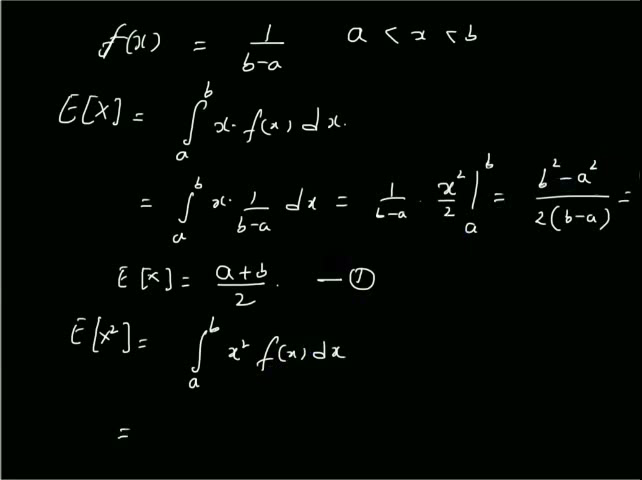 f(x) = 1/(b-a) a < x < b
E[X] = ∫_a^b x · f(x) dx.
= ∫_a^b x · 1/(b-a) dx = 1/(b-a) · x²/2 |_a^b = (b² - a²)/(2(b-a)) =
E[X] = (a+b)/2 . — ①
E[X²] = ∫_a^b x² f(x) dx
=